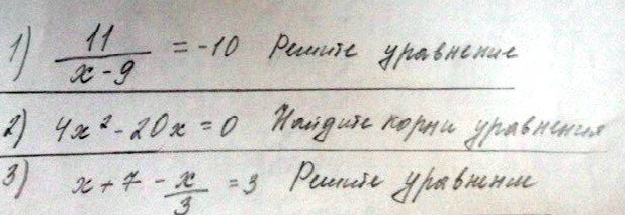 1) 11/(x-9) = -10 Решите уравнение
2) 4x² - 20x = 0 Найдите корни уравнения
3) x + 7 - x/3 = 3 Решите уравнение